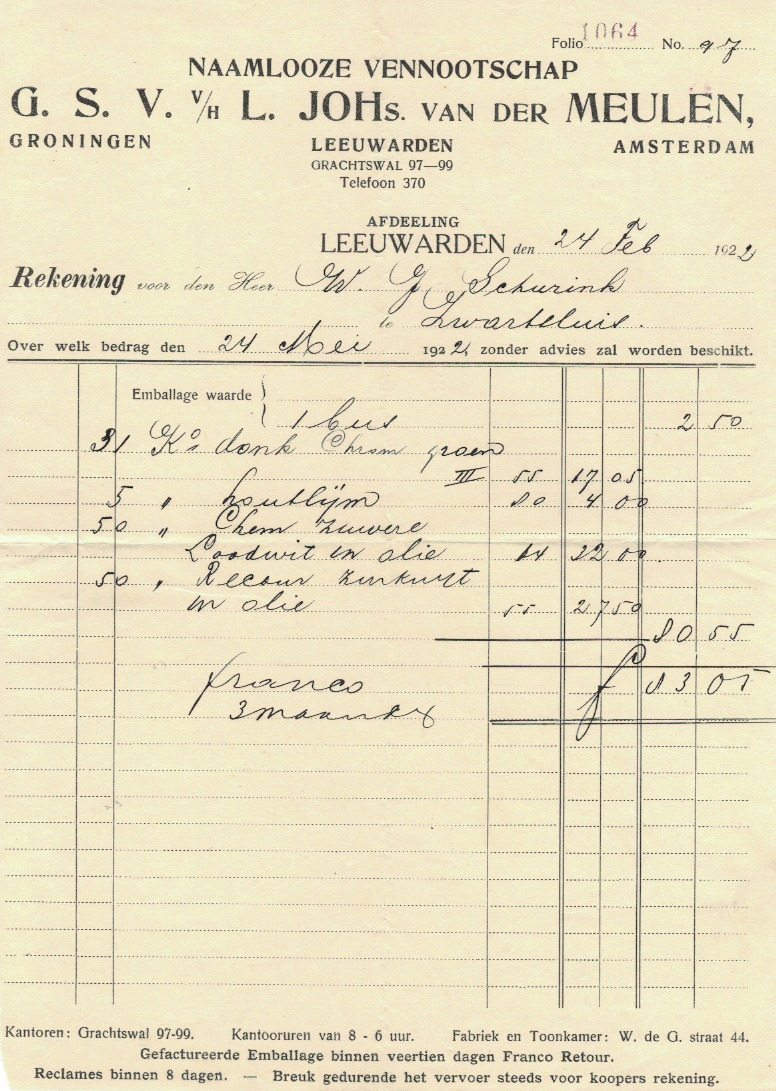 Folio 1064 No. 97
NAAMLOOZE VENNOOTSCHAP
G. S. V. V/H L. JOHs. VAN DER MEULEN,
GRONINGEN LEEUWARDEN AMSTERDAM
GRACHTSWAL 97—99
Telefoon 370
AFDEELING
LEEUWARDEN den 24 Feb 1922
Rekening voor den Heer W. G. Schurink
te Zwartsluis.
Over welk bedrag den 24 Mei 1922 zonder advies zal worden beschikt.
Emballage waarde
1 bus 2 50
31 Ko donk Chrom groen
III 55 17 05
5 " houtlijm 80 4 00
50 " Chem zuivere
Loodwit in olie 44 22 00
50 " zinkwit
in olie 55 27 50
80 55
franco f 83 05
3 maanden
Kantoren: Grachtswal 97-99. Kantooruren van 8 - 6 uur. Fabriek en Toonkamer: W. de G. straat 44.
Gefactureerde Emballage binnen veertien dagen Franco Retour.
Reclames binnen 8 dagen. — Breuk gedurende het vervoer steeds voor koopers rekening.